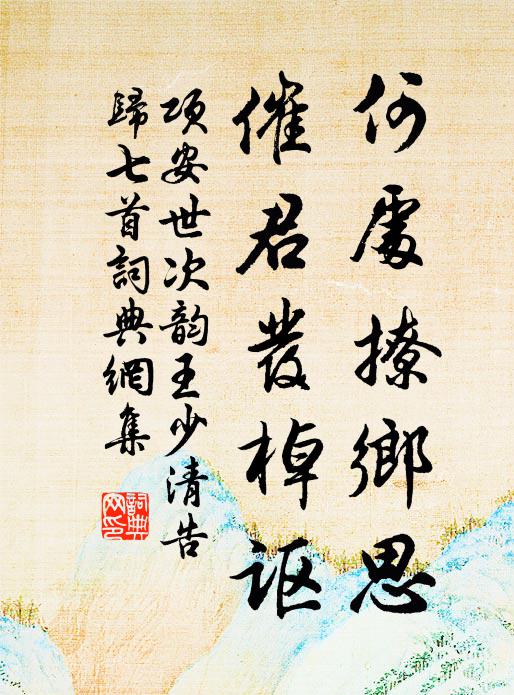 何處撩鄉思
催君發棹謳
項安世次韵王少清告
歸七首詞典網集
詞典网印